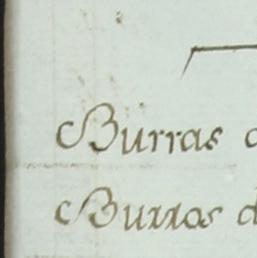 Burras
Burros d